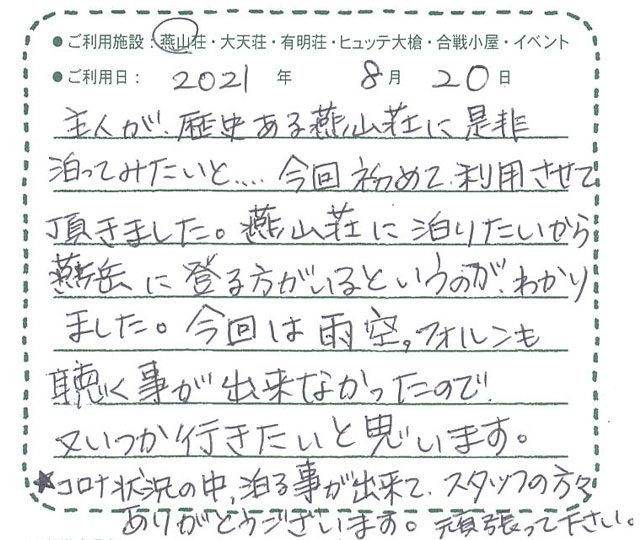 ●ご利用施設：燕山荘・大天荘・有明荘・ヒュッテ大槍・合戦小屋・イベント
●ご利用日： 2021 年 8月 20日
主人が、歴史ある燕山荘に是非
泊ってみたいと‥‥ 今回初めて、利用させて
頂きました。燕山荘に泊りたいから
燕岳に登る方がいるというのが、わかり
ました。今回は雨空。フォルンも
聴く事が出来なかったので
又いつか行きたいと思います。
★コロナ状況の中、泊る事が出来て、スタッフの方々
ありがとうございます。頑張って下さい。